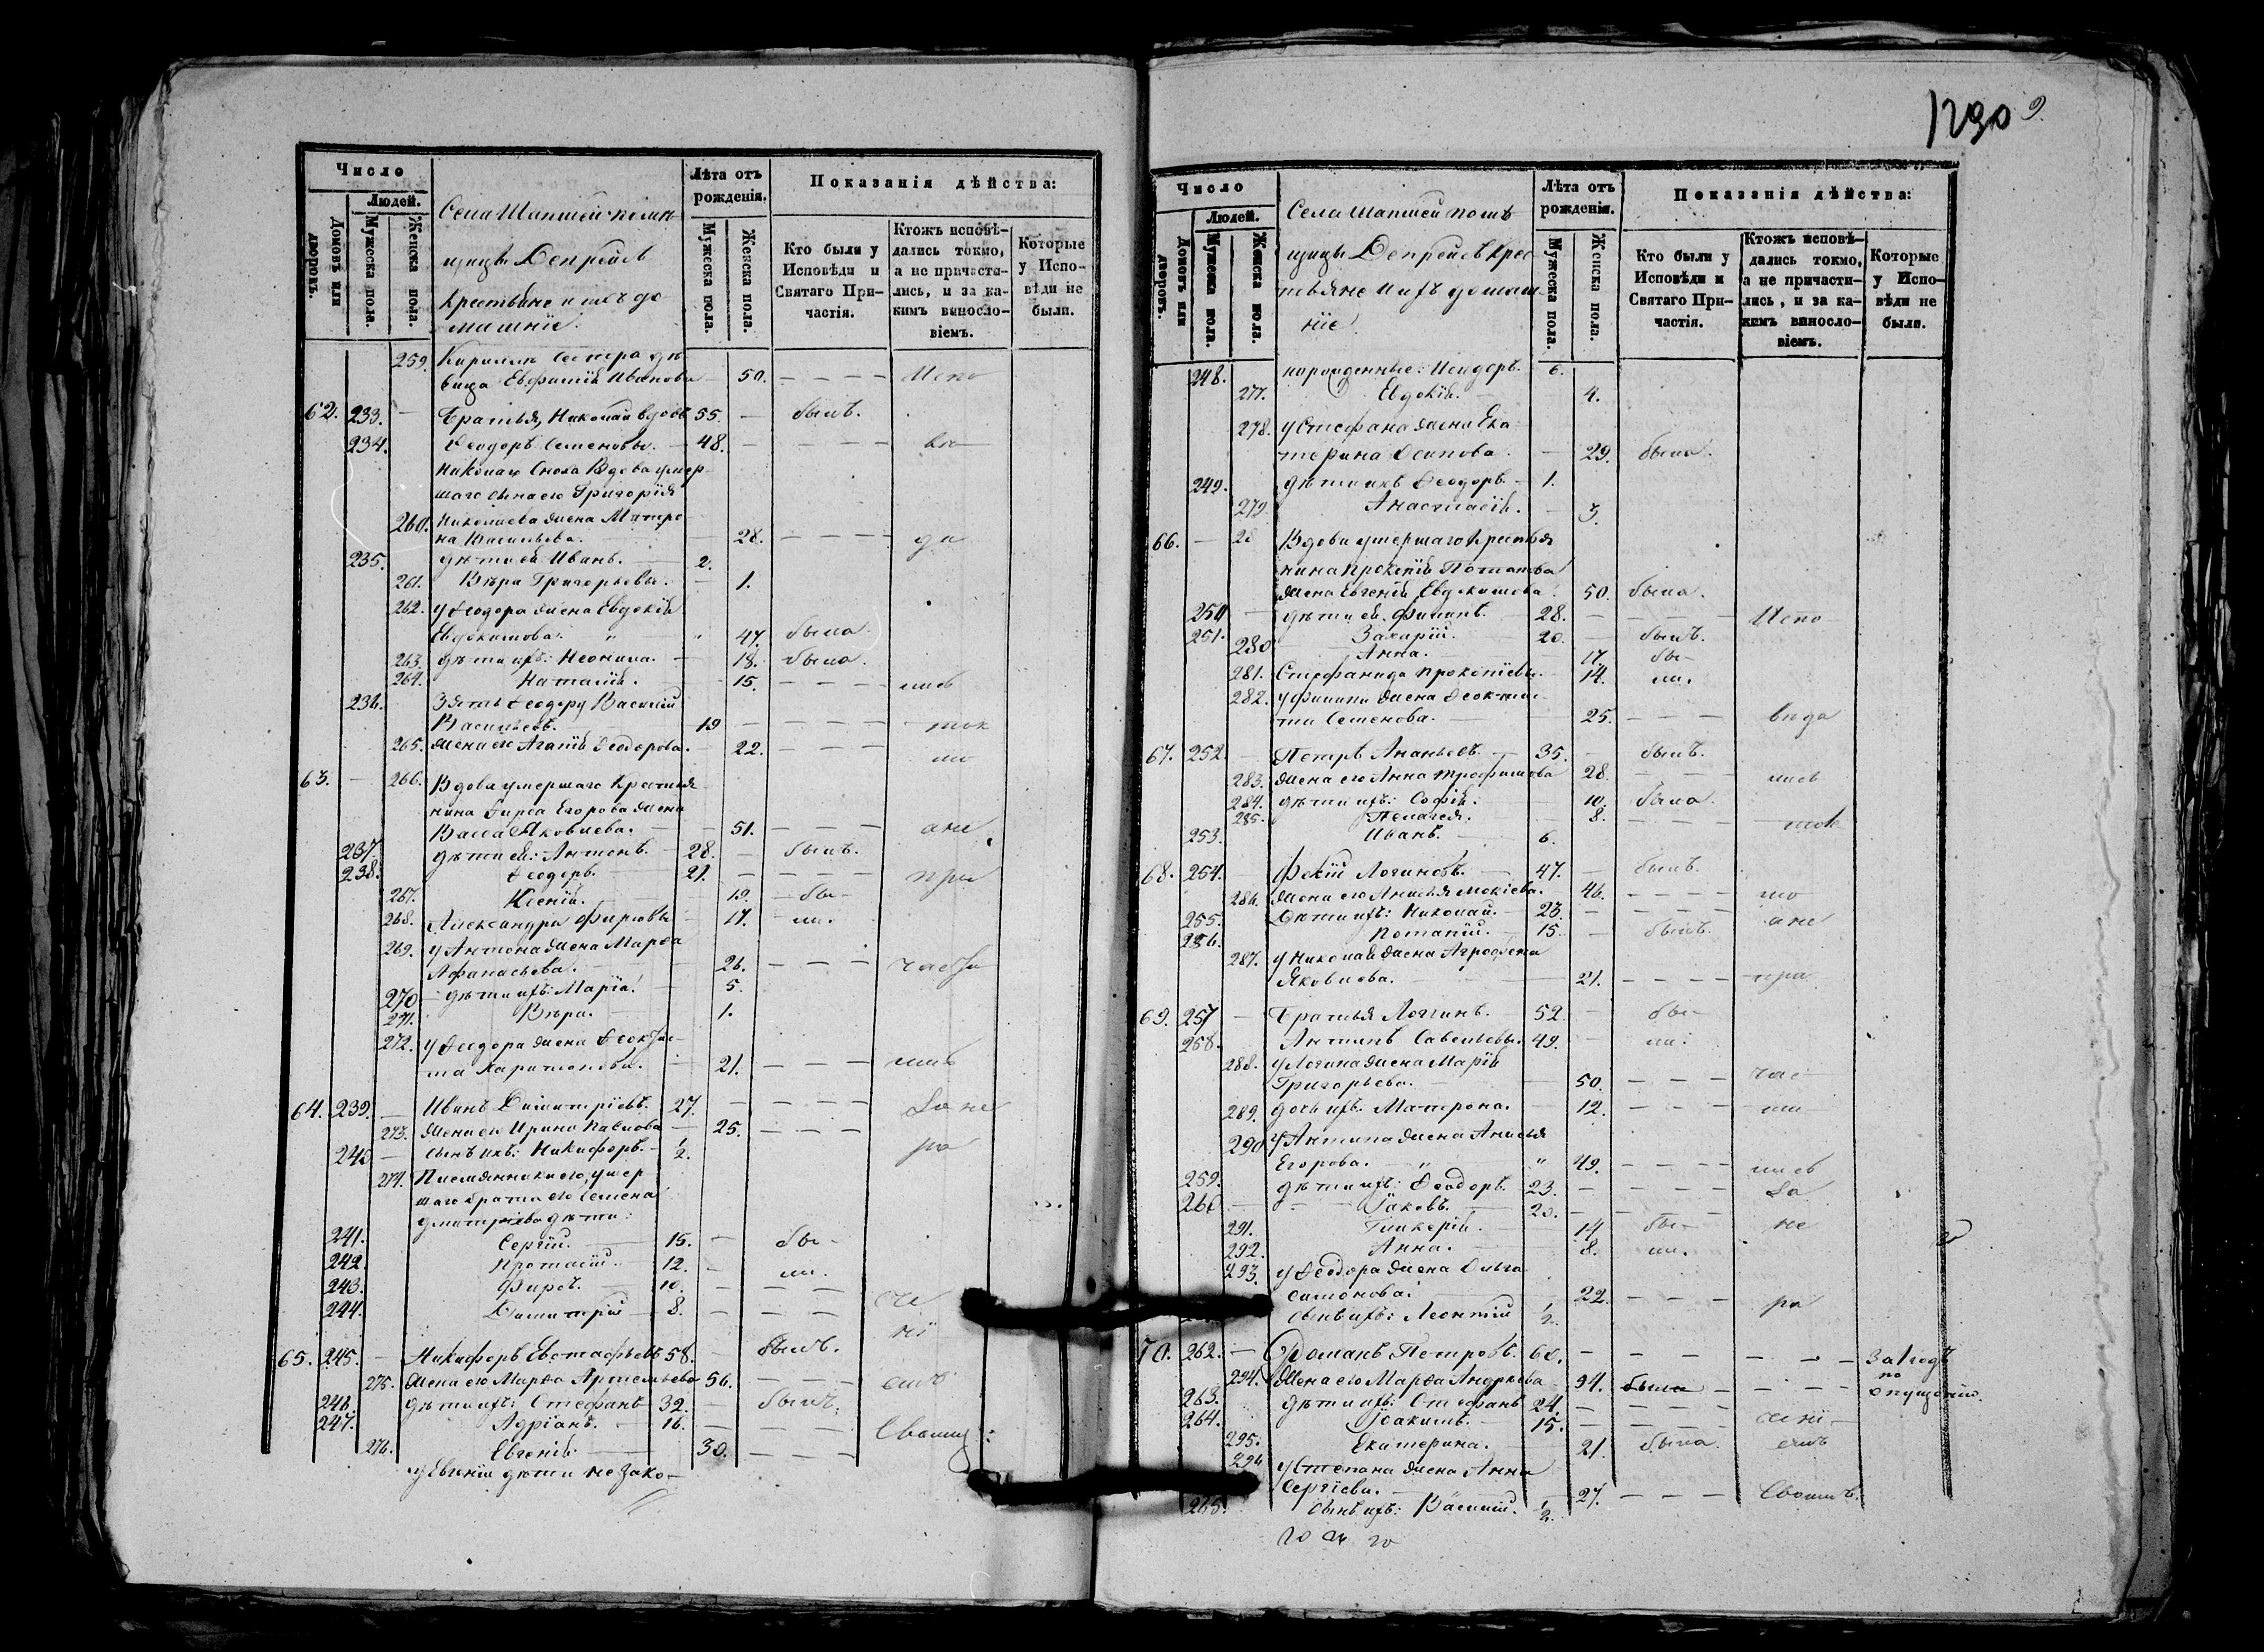 Число
Людей.
Домовъ или дворовъ.
Мужеска пола.
Женска пола.
Села Шапшей помѣ
щицы Депрейсъ
Крестьяне и ихъ до
машнiе.
Лѣта отъ рожденія.
Мужеска пола.
Женска пола.
Показанія дѣйства:
Кто были у Исповѣди и Святаго Причастія.
Ктожъ исповѣ-
дались токмо,
а не причасти-
лись, и за ка-
кимъ винословіемъ.
Которые у Испо-
вѣди не были.
259. Кирилли сестра дѣ
вица Евфимiя Иванова 50. Испо
62. 233. Братья, Николай вдовъ 55. былъ.
234. Ѳеодоръ Семеновы. 48. вѣ
Николая Сноха Вдова умер
шаго сына его Григорiя
260. Николаева жена Матро
на Васильева. 28. да
235. дѣти ея Иванъ. 2.
261. Вѣра Григорьевы. 1.
262. у Ѳеодора жена Евдокiя
Евдокимова. 47. была.
263. дѣти ихъ: Неонила. 18. была.
264. Наталiя. 15. лись
236. Зять Ѳеодору Василiй
Васильевъ. 19 ток
265. жена его Агапiя Ѳеодорова. 22. мо
63. 266. Вдова умершаго Крестья
нина Ѳирса Егорова жена
Васса Яковлева. 51. а не
237. дѣти ея: Антонъ. 28. былъ.
238. Ѳеодоръ. 21. при
267. Ксенiя. 19. бы-
268. Александра Фирсовы 17. ли.
269. у Антона жена Марѳа
Афанасьева. 26. части
270 дѣти ихъ: Марiа. 5.
271. Вѣра. 1.
272. у Ѳеодора жена Ѳеокти
ста Харитонова. 21. лись
64. 239. Иванъ Димитрiевъ. 27. За не
273. жена его Ирина Павлова 25.
240 сынъ ихъ: Никифоръ. 1/2. ра
274. Племянники его, умер
шаго брата его Семена
Дмитрiева дѣти:
241. Сергiй. 15. бы-
242. Протасiй. 12. ли.
243. Фирсъ. 10.
244. Димитрiй 8. че
65. 245. Никифоръ Евстафьевъ 58. былъ. нi
275. жена его Марѳа Артемьева 56. емъ
246. дѣти ихъ: Стефанъ 32. былъ.
247. Адрiанъ. 16.
276. Евгенiя 30. Своимъ:
у Евгенiи дѣти незако-
1290 9.
Число
Людей.
Домовъ или дворовъ.
Мужеска пола.
Женска пола.
Села Шапшей помѣ
щицы Депрейсъ крес
тьяне и ихъ домаш
нiе
Лѣта отъ рожденія.
Мужеска пола.
Женска пола.
Показанія дѣйства:
Кто были у Исповѣди и Святаго Причастія.
Ктожъ исповѣ-
дались токмо,
а не причасти-
лись, и за ка-
кимъ винословіемъ.
Которые у Испо-
вѣди не были.
248. норожденные: Исидоръ. 6.
277. Евдокiя. 4.
278. у Стефана жена Ека
терина Осипова. 29. была.
249. дѣти ихъ Ѳеодоръ. 1.
279. Анастасiя. 3.
66. Вдова умершаго Крестья
нина Прокопiя Потапова
жена Евгенiя Евдокимова 50. была.
250 дѣти ея. Филипъ. 28. Испо
251. Захарiй. 20. былъ.
280 Анна. 17. бы-
281. Стефанида Прокопiевы. 14. ли.
282. у Филипа жена Ѳеоктис
та Семенова. 25. вѣда
67. 252. Петръ Ананьевъ. 35. былъ.
283. жена его Анна Трофимова 28. лись
284. дѣти ихъ: Софiя. 10. была.
285. Пелагея. 8. ток
253. Иванъ. 6.
68. 254. Фокiй Логиновъ. 47. былъ.
286. жена его Анисья Мокiева. 46. мо
255. Дѣти ихъ: Николай. 23. а не
256. Потапiй. 15. былъ.
287. у Николая жена Агрофена
Яковлева. 21. при
69. 257 Братья Логгинъ. 52. бы-
258. Антипъ Савельевы 49. ли.
288. у Логина жена Марiя
Григорьева. 50. час
289. дочь ихъ. Матрона. 12. ти
290 У Антипа жена Анисья
Егорова. 49. лись
259. дѣти ихъ: Ѳеодоръ. 23. За
260 Iаковъ. 20.
291. Гликерiя. 14 бы- не
292. Анна. 8. ли.
293. у Ѳеодора жена Ольга
Симонова. 22. ра
сынъ ихъ: Леонтiй 1/2
70. 262. Романъ Петровъ. 60. За 1 годъ
по
опущенiю.
294. Жена его Марѳа Андреева 54. была
263. дѣти ихъ: Стефанъ 24.
264. Iоакимъ. 15. ченi
295. Екатерина. 21. была. емъ
296 у Степана жена Анна
Сергiева. 27. Своимъ.
265. сынъ ихъ: Василiй. 1/2.